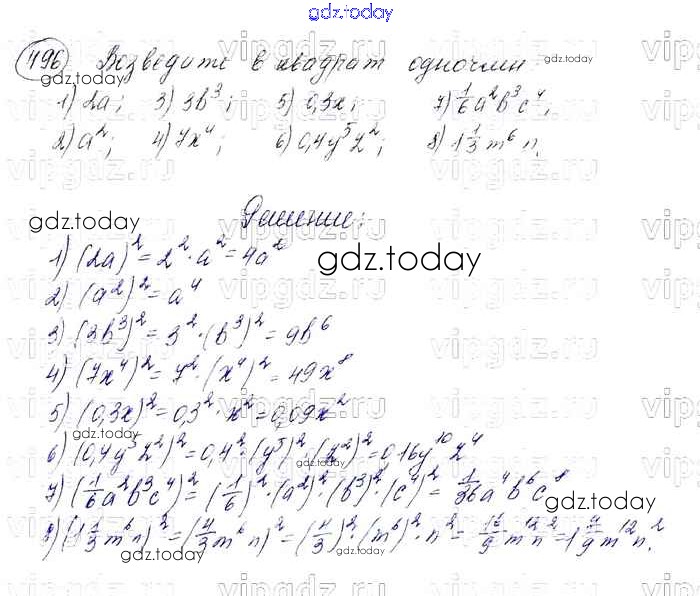 gdz.today
gdz.today
496 Возведите в квадрат одночлен
1) 2a; 3) 3b³; 5) 0,3x; 7) 1/6 a²b³c⁴;
2) a²; 4) 7x⁴; 6) 0,4y⁵z²; 8) 1 1/3 m⁶n.
Решение:
gdz.today
1) (2a)² = 2²·a² = 4a²
gdz.today
2) (a²)² = a⁴
3) (3b³)² = 3²·(b³)² = 9b⁶
4) (7x⁴)² = 7²·(x⁴)² = 49x⁸
5) (0,3x)² = 0,3²·x² = 0,09x²
gdz.today
6) (0,4y⁵z²)² = 0,4²·(y⁵)²·(z²)² = 0,16y¹⁰z⁴
gdz.today
7) (1/6 a²b³c⁴)² = (1/6)²·(a²)²·(b³)²·(c⁴)² = 1/36 a⁴b⁶c⁸
gdz.today
8) (1 1/3 m⁶n)² = (4/3 m⁶n)² = (4/3)²·(m⁶)²·n² = 16/9 m¹²n² = 1 7/9 m¹²n².
gdz.today
vipgdz.ru